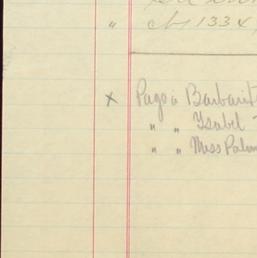 " 1334
x Pago a Barbarit
" " Ysabel
" " Miss Palm